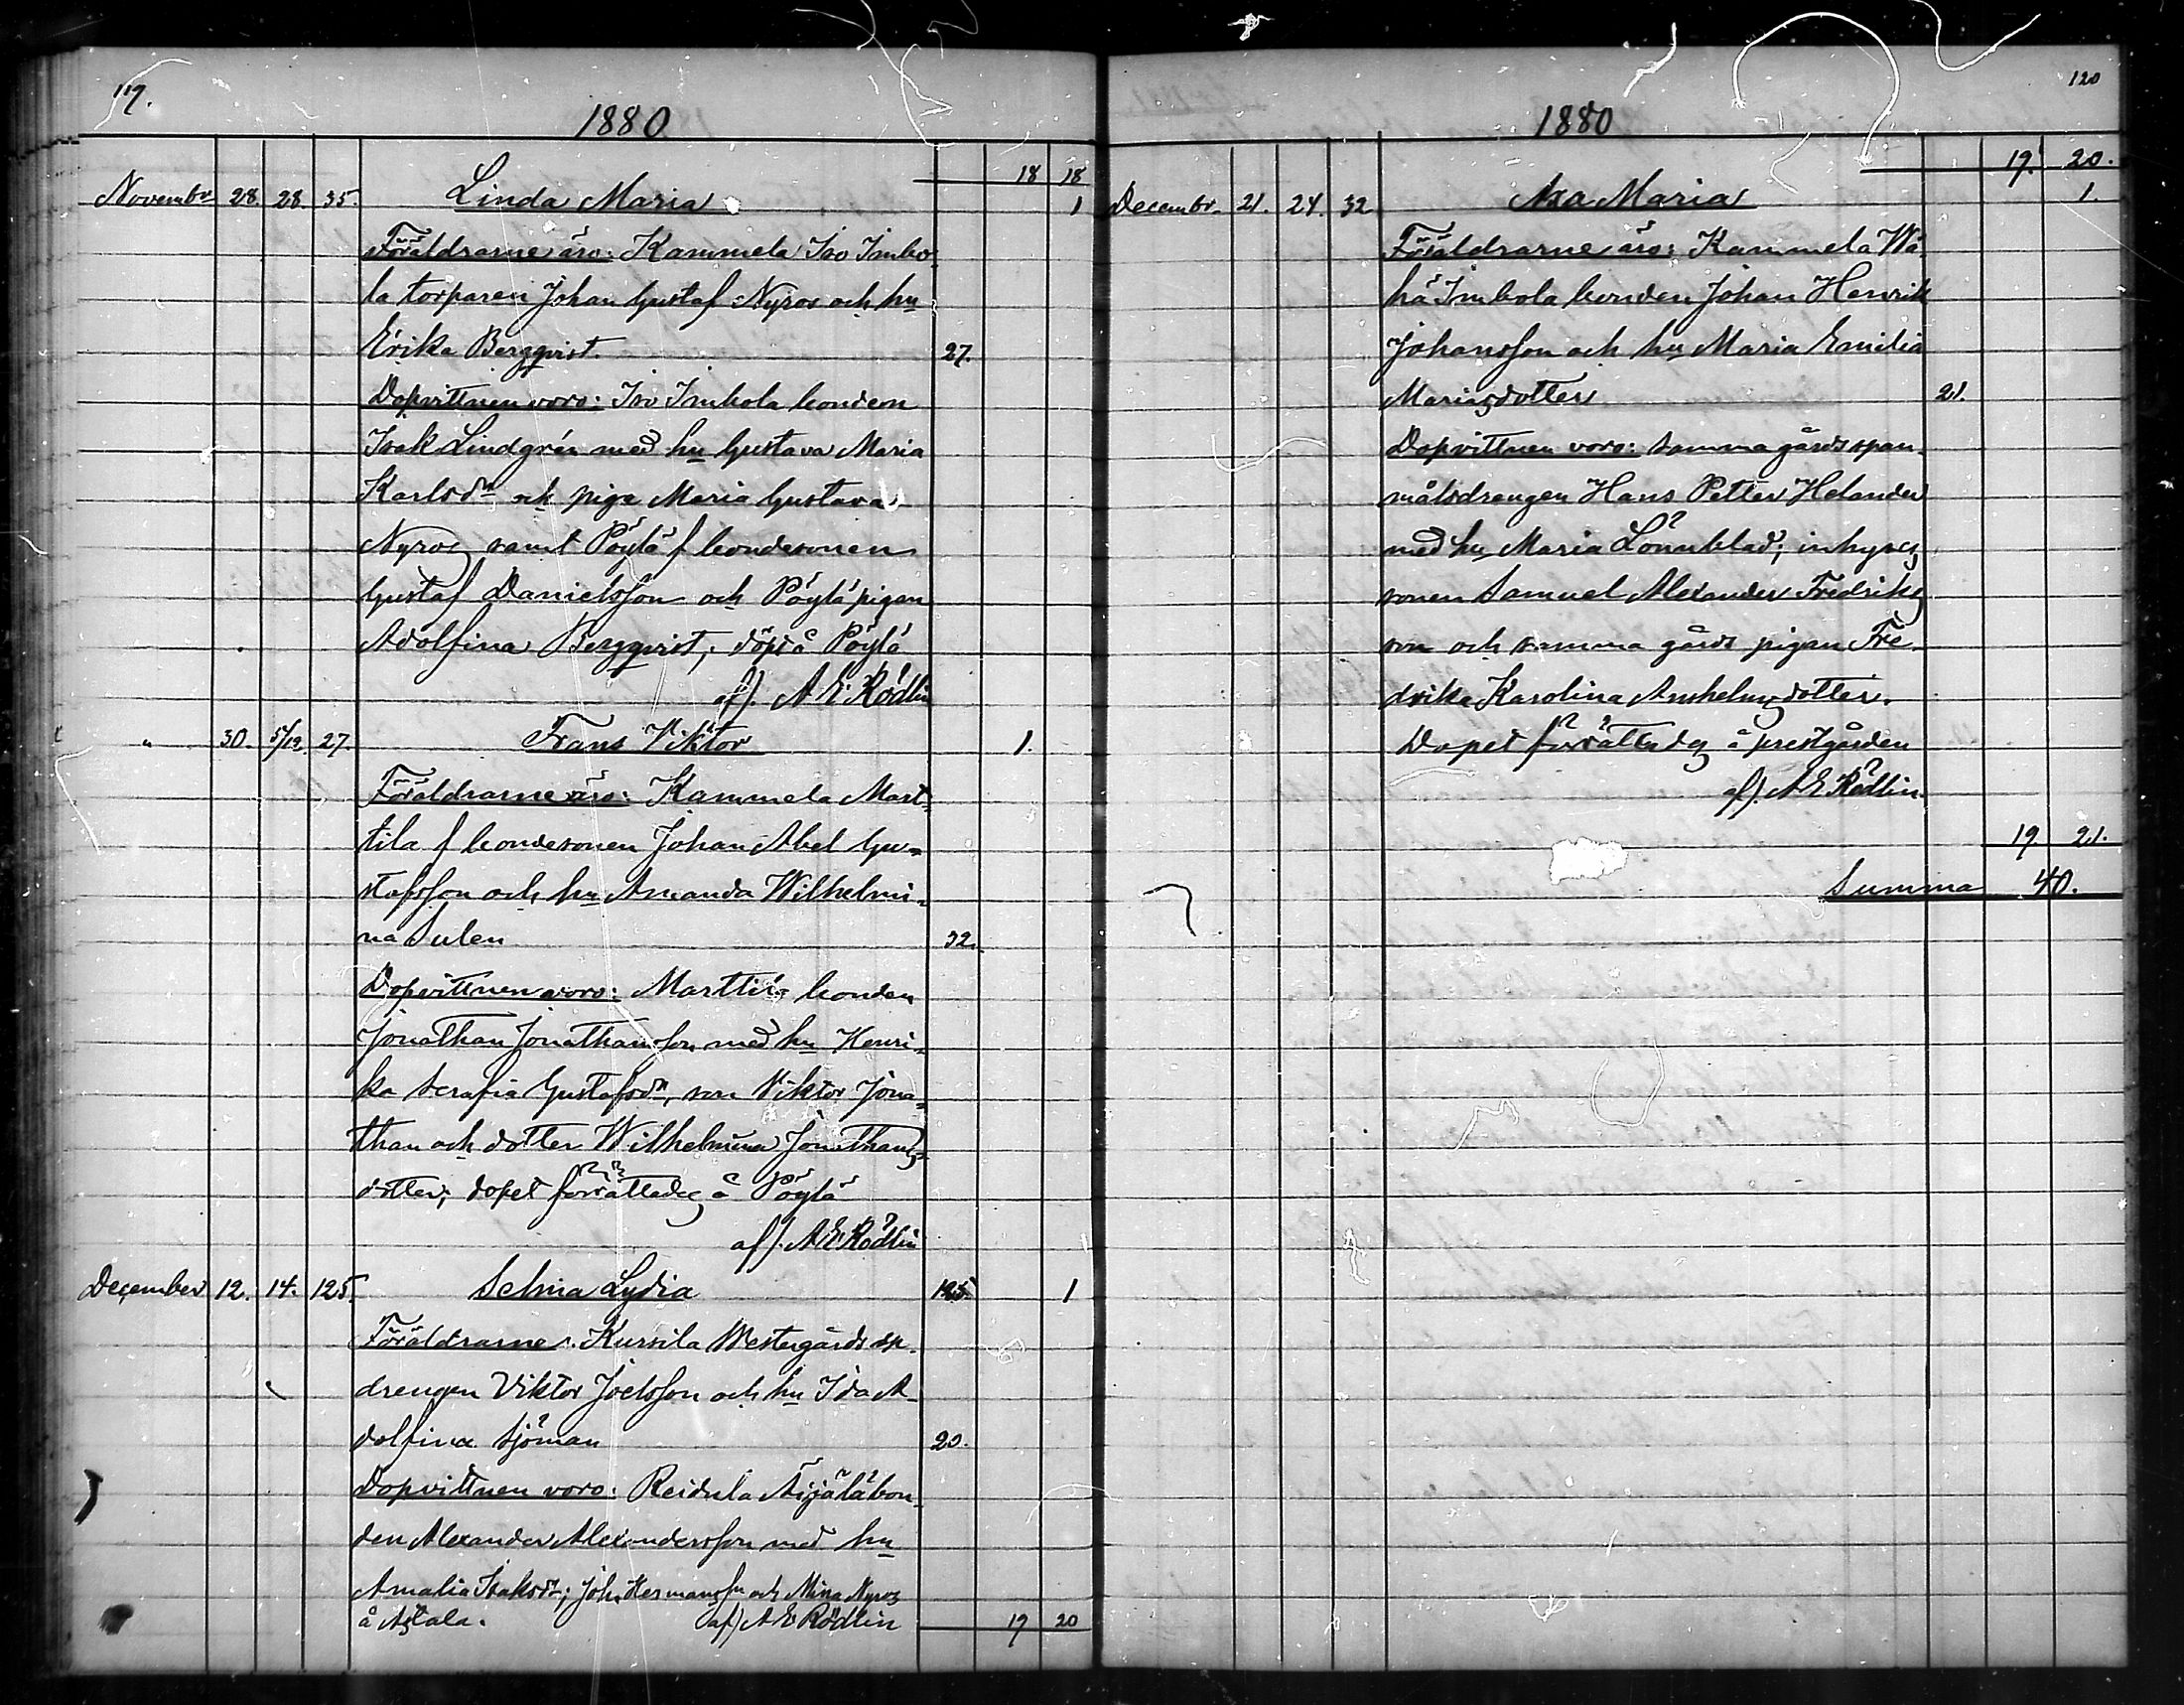 119.
1880
18 18
Novembr 28. 28. 35. Linda Maria 1
Föräldrarne äro: Kammela Iso Imbo-
la torparen Johan Gustaf Nyros och hu
Erika Bergqvist. 27.
Dopvittnen voro: Iso Imbola bonden
Isak Lindgrén med hu Gustava Maria
Karlsdr och piga Maria Gustava
Nyros samt Pöylä f bondesonen
Gustaf Danielsson och Pöylä pigan
Adolfina Bergqvist, döpt å Pöylä
af). A E Rödlin
" 30. 5/12. 27. Frans Viktor 1.
Föräldrarne äro: Kammela Mart-
tila f bondesonen Johan Abel Gu-
stafsson och hu Amanda Wilhelmi-
na Sulen 32.
Dopvittnen voro: Marttila bonden
Jonathan Jonathansson med hu Henri-
ka Serafia Gustafsdr, son Viktor Jona-
than och dotter Wilhelmina Jonathans-
dotter; dopet förrättades å Pöylä
af). A E Rödlin
December 12. 14. 125. Selma Lydia 125. 1
Föräldrarne: Kursila Westergårds sp.
drengen Viktor Joelsson och hu Ida A-
dolfina Sjöman 20.
Dopvittnen voro: Reidula Äijälä bon-
den Alexander Alexandersson med hu
Amalia Isaksdr; Joh. Hermansson och Mina Nyros
å Astala. af) A E Rödlin 19 20
120
1880
19. 20.
Decembr. 21. 24. 32 Axa Maria 1.
Föräldrarne äro: Kammela Wä-
hä Imbola bonden Johan Henrik
Johansson och hu Maria Emilia
Mariasdotter 21.
Dopvittnen voro: samma gårds span-
målsdrengen Hans Petter Helander
med hu Maria Lönnblad; inhyses
sonen Samuel Alexander Fredriks
son och samma gårds pigan Fre-
drika Karolina Anshelmsdotter.
Dopet förrättades å prestgården
af). A E Rödlin.
19. 21.
Summa 40.